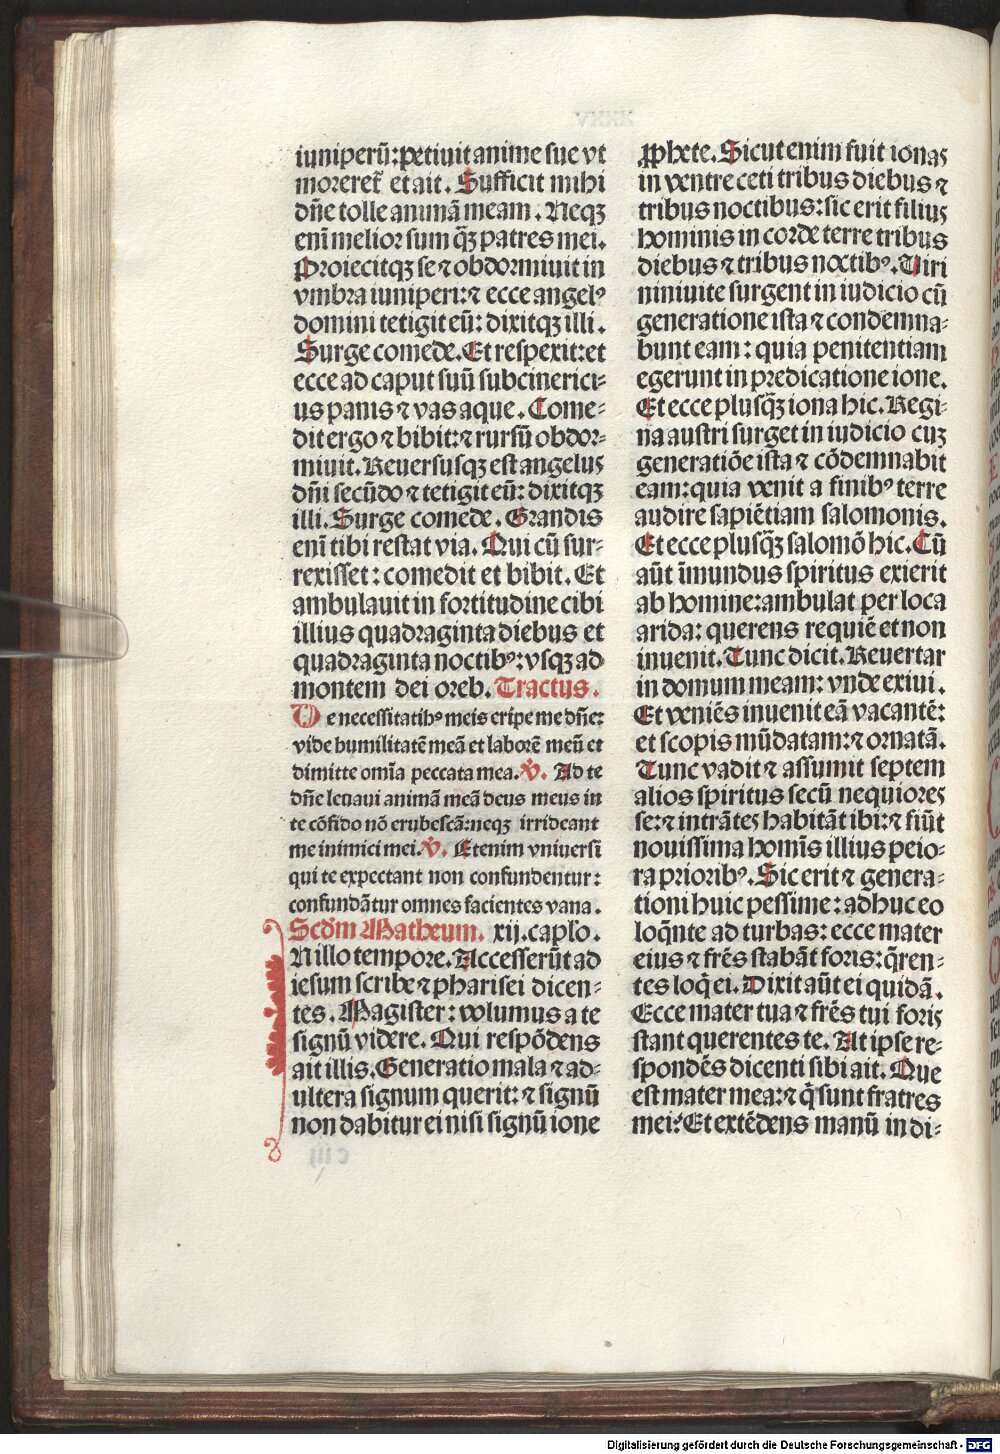 iuniperū: petiuit anime sue vt
moreret᷑ et ait. Sufficit mihi
dn̄e tolle animā meam. Neqꝫ
eni̅ melior sum q̄ꝫ patres mei.
Proiecitqꝫ se ⁊ obdormiuit in
vmbra iuniperi: ⁊ ecce angelꝰ
domini tetigit eū: dixitqꝫ illi.
Surge comede. Et respexit: et
ecce ad caput suū subcinerici-
us panis ⁊ vas aque. Come-
dit ergo ⁊ bibit: ⁊ rursū obdor-
miuit. Reuersusqꝫ est angelus
dn̄i secūdo ⁊ tetigit eū: dixitqꝫ
illi. Surge comede. Grandis
eni̅ tibi restat via. Qui cū sur-
rexisset: comedit et bibit. Et
ambulauit in fortitudine cibi
illius quadraginta diebus et
quadraginta noctibꝰ: vsqꝫ ad
montem dei oreb. Tractus.
De necessitatibꝰ meis eripe me dn̄e:
vide humilitatē meā et laborē meū et
dimitte omi̅a peccata mea. ℣. Ad te
dn̄e leuaui animā meā deus meus in
te cōfido nō erubescā: neqꝫ irrideant
me inimici mei. ℣. Etenim vniuersi
qui te expectant non confundentur:
confundātur omnes facientes vana.
Scd̄m Matheum. xij. capło.
N illo tempore. Accesserūt ad
iesum scribe ⁊ pharisei dicen-
tes. Magister: volumus a te
signū videre. Qui respōdens
ait illis. Generatio mala ⁊ ad-
ultera signum querit: ⁊ signū
non dabitur ei nisi signū ione
ꝓphete. Sicut enim fuit ionas
in ventre ceti tribus diebus ⁊
tribus noctibus: sic erit filius
hominis in corde terre tribus
diebus ⁊ tribus noctibꝰ. Uiri
niniuite surgent in iudicio cū
generatione ista ⁊ condemna-
bunt eam: quia penitentiam
egerunt in predicatione ione.
Et ecce plusq̄ꝫ iona hic. Regi-
na austri surget in iudicio cuꝫ
generatiōe ista ⁊ cōdemnabit
eam: quia venit a finibꝰ terre
audire sapiētiam salomonis.
Et ecce plusq̄ꝫ salomō hic. Cū
aūt i̅mundus spiritus exierit
ab homine: ambulat per loca
arida: querens requiē et non
inuenit. Tunc dicit. Reuertar
in domum meam: vnde exiui.
Et veniēs inuenit eā vacantē:
et scopis mūdatam: ⁊ ornatā.
Tunc vadit ⁊ assumit septem
alios spiritus secū nequiores
se: ⁊ intrātes habitāt ibi: ⁊ fiūt
nouissima homi̅s illius peio-
ra prioribꝰ. Sic erit ⁊ genera-
tioni huic pessime: adhuc eo
loq̄nte ad turbas: ecce mater
eius ⁊ frēs stabāt foris: q̄ren-
tes loq̄ ei. Dixit aūt ei quidā.
Ecce mater tua ⁊ frēs tui foris
stant querentes te. At ipse re-
spondēs dicenti sibi ait. Que
est mater mea: ⁊ q̄ sunt fratres
mei? Et extēdens manū in di-
Digitalisierung gefördert durch die Deutsche Forschungsgemeinschaft - DFG